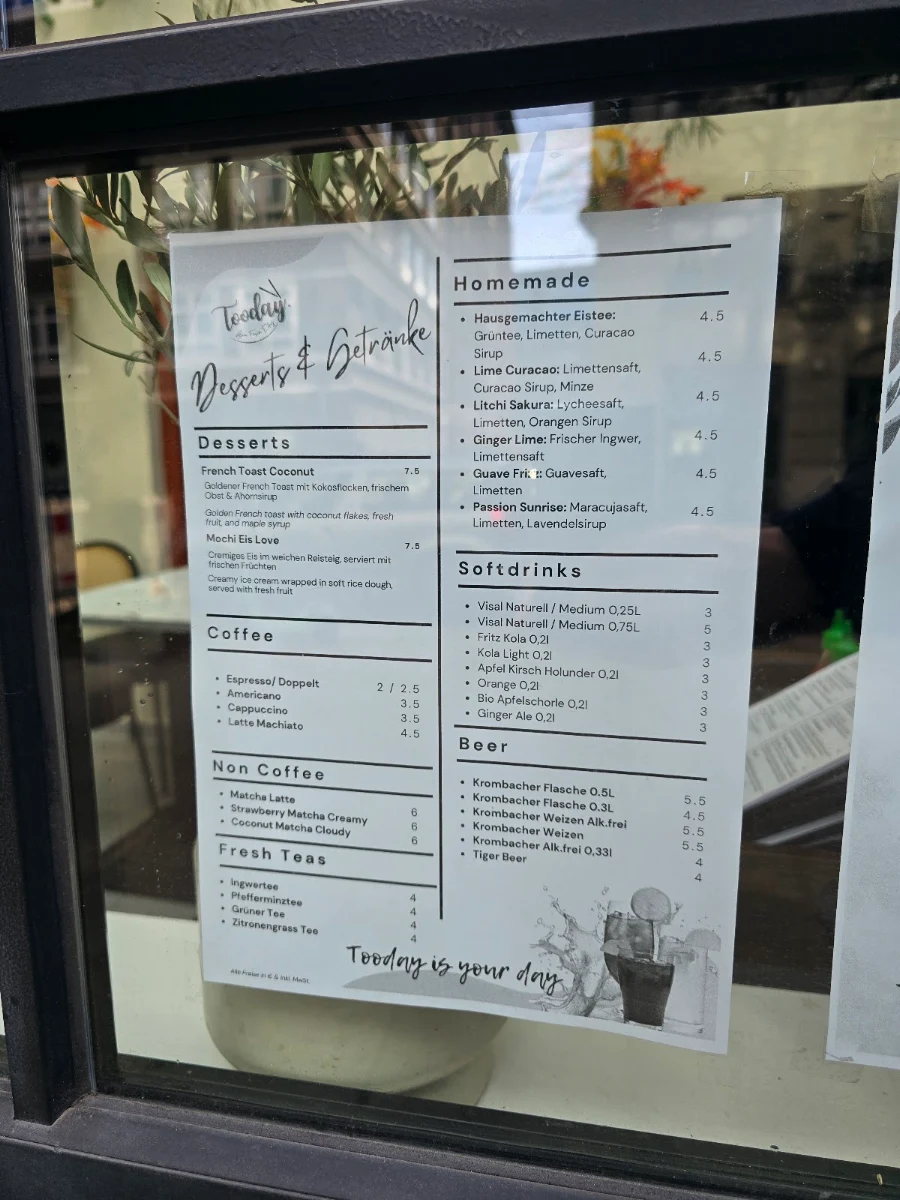 Tooday.
Desserts & Getränke
Desserts
French Toast Coconut 7.5
Goldener French Toast mit Kokosflocken, frischem
Obst & Ahornsirup
Golden French toast with coconut flakes, fresh
fruit, and maple syrup
Mochi Eis Love 7.5
Cremiges Eis im weichen Reisteig, serviert mit
frischen Früchten
Creamy ice cream wrapped in soft rice dough,
served with fresh fruit
Coffee
• Espresso/ Doppelt 2 / 2.5
• Americano 3.5
• Cappuccino 3.5
• Latte Machiato 4.5
Non Coffee
• Matcha Latte 6
• Strawberry Matcha Creamy 6
• Coconut Matcha Cloudy 6
Fresh Teas
• Ingwertee 4
• Pfefferminztee 4
• Grüner Tee 4
• Zitronengrass Tee 4
Alle Preise in € & inkl. MwSt.
Homemade
• Hausgemachter Eistee: 4.5
Grüntee, Limetten, Curacao
Sirup
• Lime Curacao: Limettensaft, 4.5
Curacao Sirup, Minze
• Litchi Sakura: Lycheesaft, 4.5
Limetten, Orangen Sirup
• Ginger Lime: Frischer Ingwer, 4.5
Limettensaft
• Guave Guavesaft, 4.5
Limetten
• Passion Sunrise: Maracujasaft, 4.5
Limetten, Lavendelsirup
Softdrinks
• Visal Naturell / Medium 0,25L 3
• Visal Naturell / Medium 0,75L 5
• Fritz Kola 0,2l 3
• Kola Light 0,2l 3
• Apfel Kirsch Holunder 0,2l 3
• Orange 0,2l 3
• Bio Apfelschorle 0,2l 3
• Ginger Ale 0,2l 3
Beer
• Krombacher Flasche 0.5L 5.5
• Krombacher Flasche 0.3L 4.5
• Krombacher Weizen Alk.frei 5.5
• Krombacher Weizen 5.5
• Krombacher Alk.frei 0,33l 4
• Tiger Beer 4
Tooday is your day